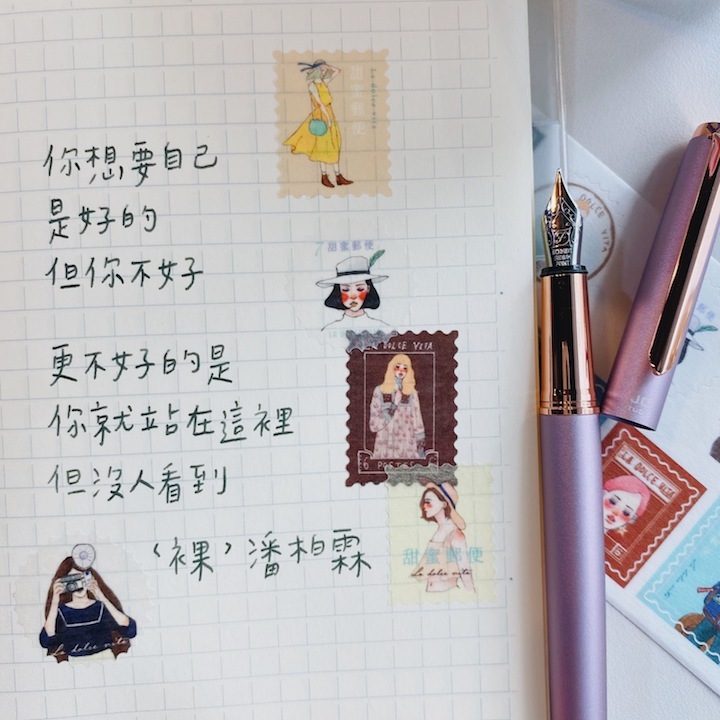 你想要自己
是好的
但你不好
更不好的是
你就站在這裡
但沒人看到
〈裸〉潘柏霖
甜蜜郵便
La dolce vita
7 甜蜜郵便
LA DOLCE VITA
6
甜蜜郵便
La dolce vita
La dolce vita
DOLCE VITA
LA DOLCE VITA